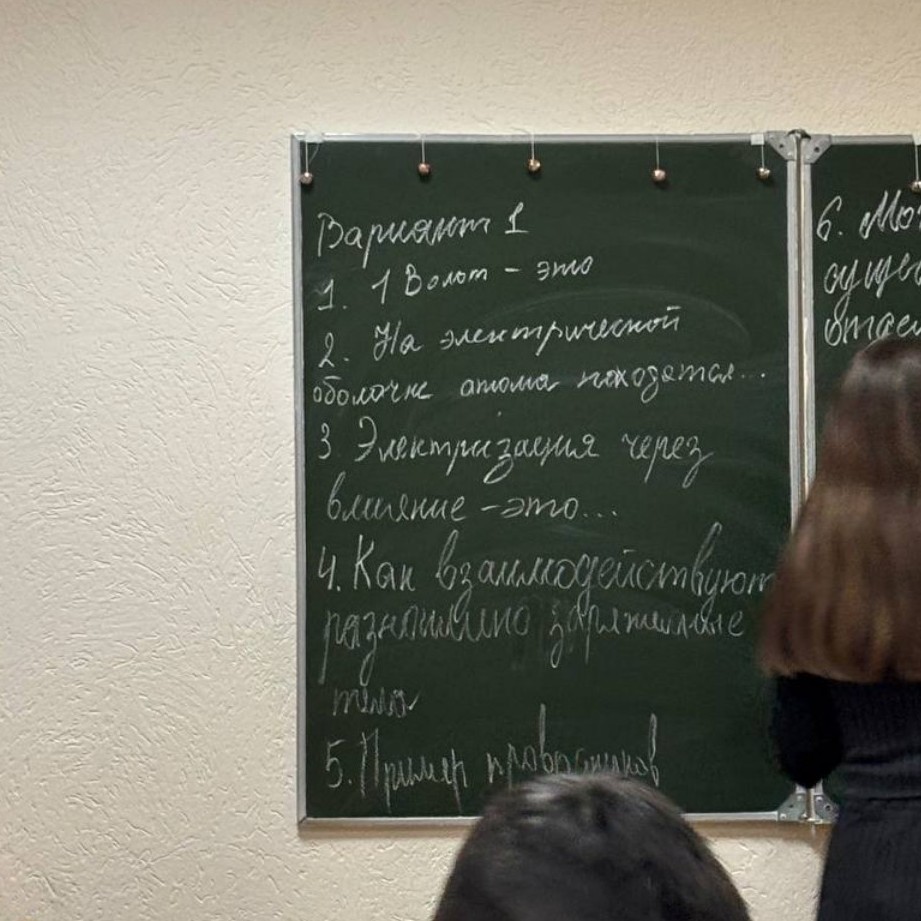 Вариант 1
1. 1 Вольт - это
2. На электрической
оболочке атома находятся...
3 Электризация через
влияние - это...
4. Как взаимодействуют
разноимённо заряженные
тела
5. Пример проводников
6.